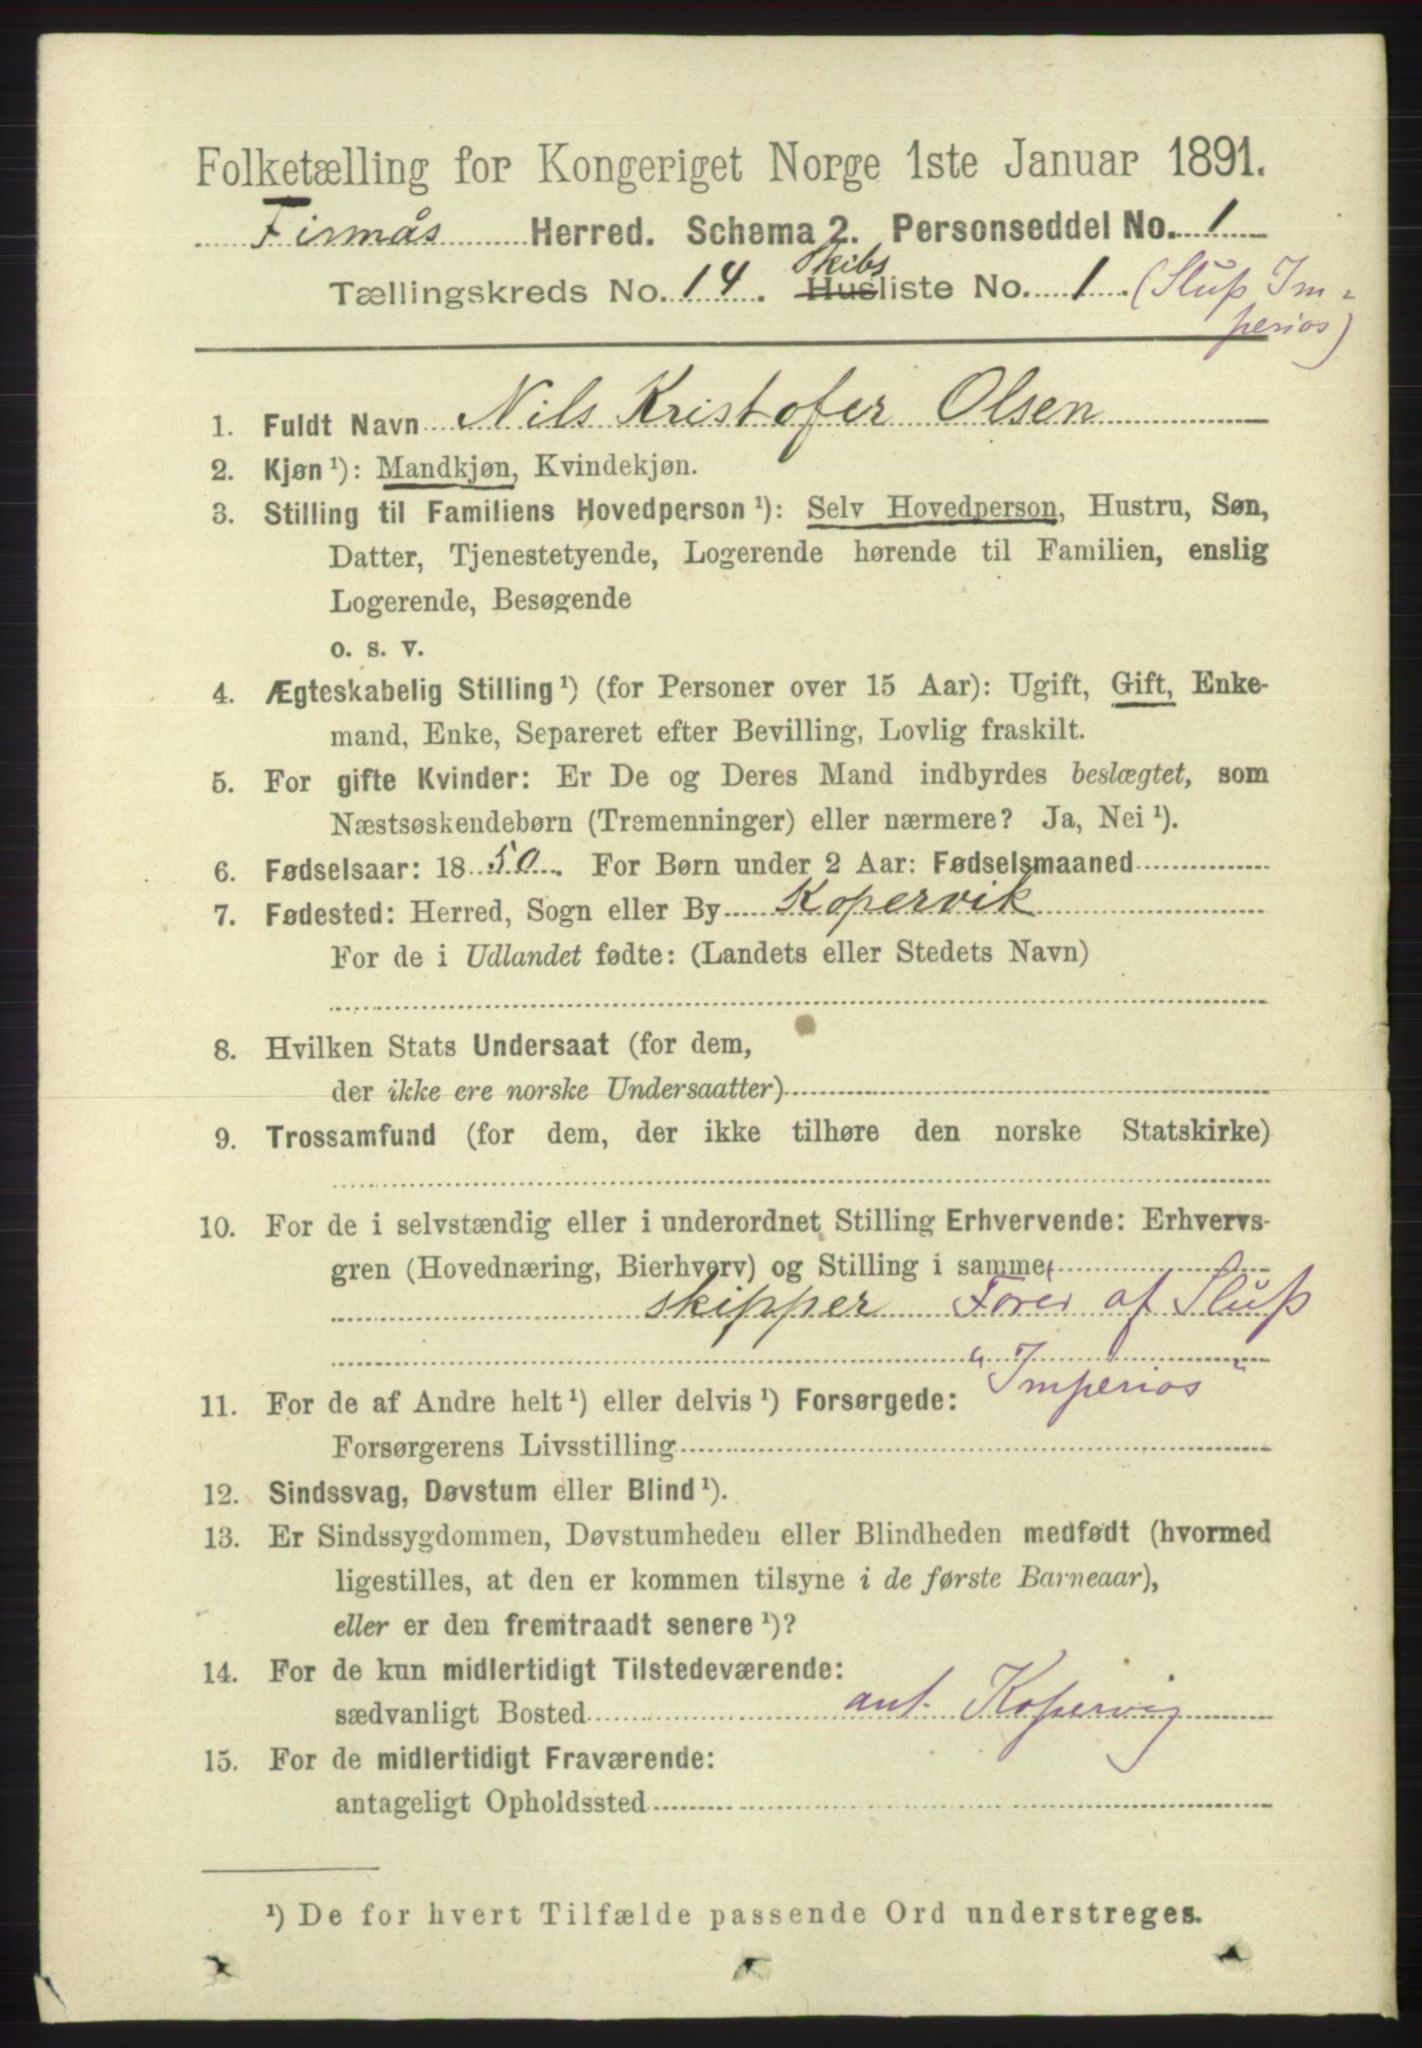 Folketælling for Kongeriget Norge 1ste Januar 1891.
Firmås Herred. Schema 2. Personseddel No. 1
Skibs
Tællingskreds No. 14. Husliste No. 1. (Slup Im-
perios)
1. Fuldt Navn Nils Kristofer Olsen
2. Kjøn ¹): Mandkjøn, Kvindekjøn.
3. Stilling til Familiens Hovedperson ¹): Selv Hovedperson, Hustru, Søn,
Datter, Tjenestetyende, Logerende hørende til Familien, enslig
Logerende, Besøgende
o. s. v.
4. Ægteskabelig Stilling ¹) (for Personer over 15 Aar): Ugift, Gift, Enke-
mand, Enke, Separeret efter Bevilling, Lovlig fraskilt.
5. For gifte Kvinder: Er De og Deres Mand indbyrdes beslægtet, som
Næstsøskendebørn (Tremenninger) eller nærmere? Ja, Nei ¹).
6. Fødselsaar: 1850. For Børn under 2 Aar: Fødselsmaaned
7. Fødested: Herred, Sogn eller By Kopervik
For de i Udlandet fødte: (Landets eller Stedets Navn)
8. Hvilken Stats Undersaat (for dem,
der ikke ere norske Undersaatter)
9. Trossamfund (for dem, der ikke tilhøre den norske Statskirke)
10. For de i selvstændig eller i underordnet Stilling Erhvervende: Erhvervs-
gren (Hovednæring, Bierhverv) og Stilling i samme
skipper Förer af Slup
"Imperios"
11. For de af Andre helt ¹) eller delvis ¹) Forsørgede:
Forsørgerens Livsstilling
12. Sindssvag, Døvstum eller Blind ¹).
13. Er Sindssygdommen, Døvstumheden eller Blindheden medfødt (hvormed
ligestilles, at den er kommen tilsyne i de første Barneaar),
eller er den fremtraadt senere ¹)?
14. For de kun midlertidigt Tilstedeværende:
sædvanligt Bosted ant. Kopervig
15. For de midlertidigt Fraværende:
antageligt Opholdssted
¹) De for hvert Tilfælde passende Ord understreges.